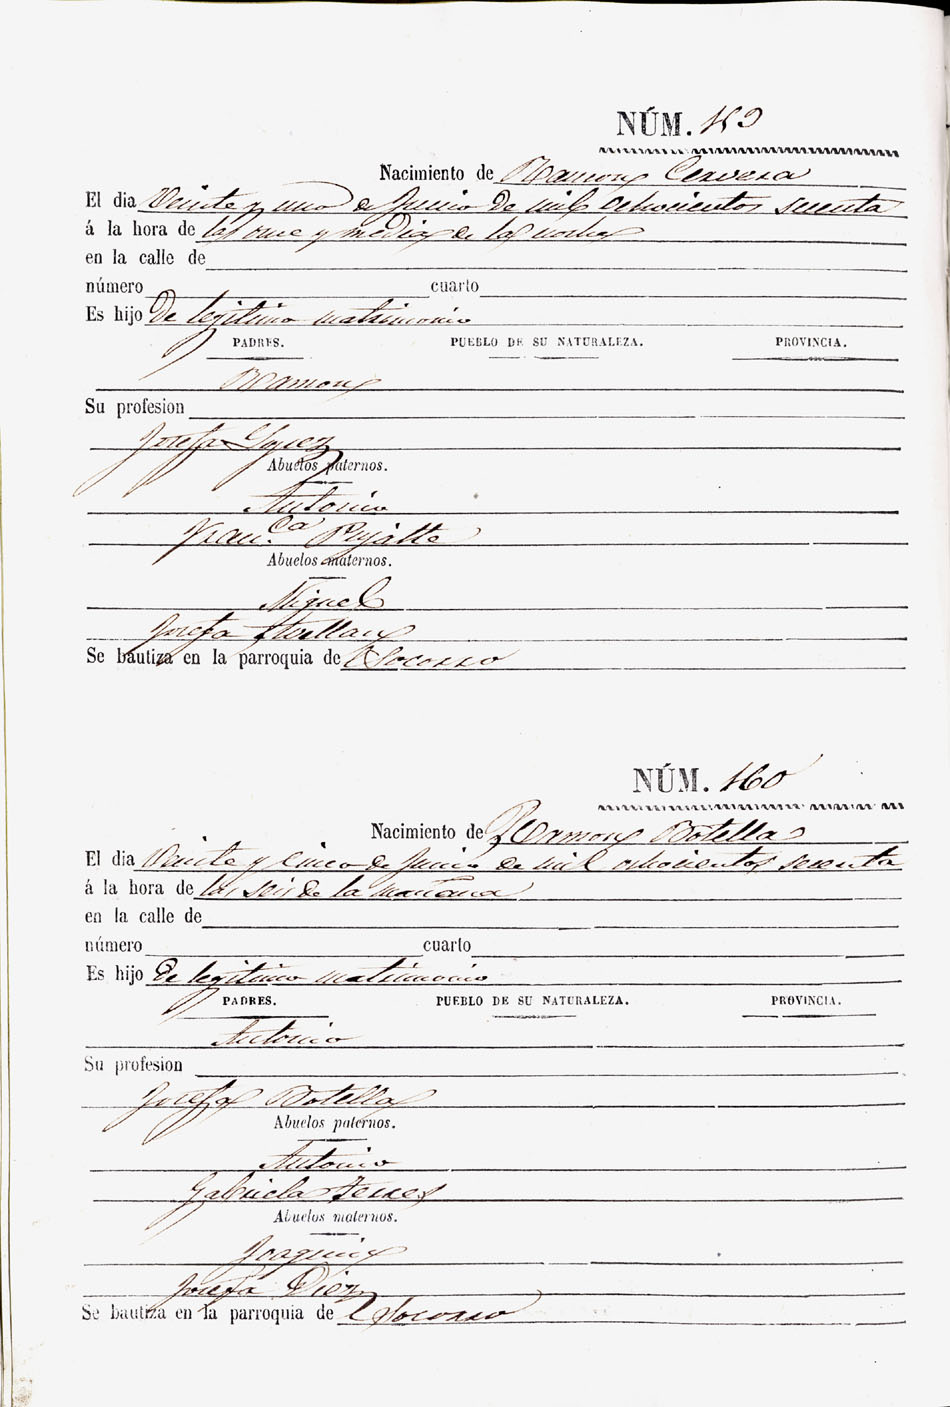 NÚM. 159
Nacimiento de Ramon Cervera
El dia Veinte y uno de Junio de mil ochocientos sesenta
á la hora de las once y media de la noche
en la calle de
número cuarto
Es hijo de legitimo matrimonio
PADRES. PUEBLO DE SU NATURALEZA. PROVINCIA.
Ramon
Su profesion
Josefa
Abuelos paternos.
Antonio
Fran.ca Pujalte
Abuelos maternos.
Miguel
Josefa
Se bautiza en la parroquia de Socorro
NÚM. 160
Nacimiento de Ramon Botella
El dia Veinte y cinco de Junio de mil ochocientos sesenta
á la hora de las seis de la mañana
en la calle de
número cuarto
Es hijo de legitimo matrimonio
PADRES. PUEBLO DE SU NATURALEZA. PROVINCIA.
Antonio
Su profesion
Josefa Botella
Abuelos paternos.
Antonio
Gabriela
Abuelos maternos.
Joaquin
Josefa Diez
Se bautiza en la parroquia de Socorro